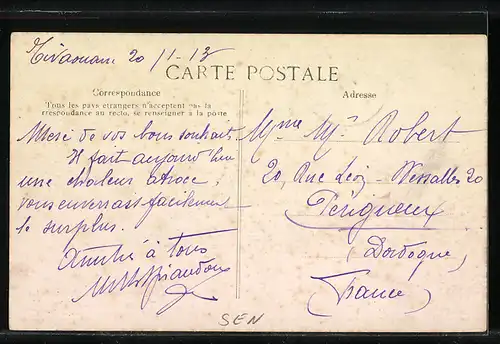 Tivaouane 20/11-13
CARTE POSTALE
Correspondance
Tous les pays étrangers n'acceptent pas la
correspondance au recto, se renseigner à la poste
Merci de vos bons souhaits
Il fait aujourd'hui
une chaleur atroce,
vous enverrais facilement
le surplus.
Amitié à tous
Adresse
Mme Robert
20, Rue Léon - Versalles 20
Périgueux
(Dordogne)
(France)
SEN